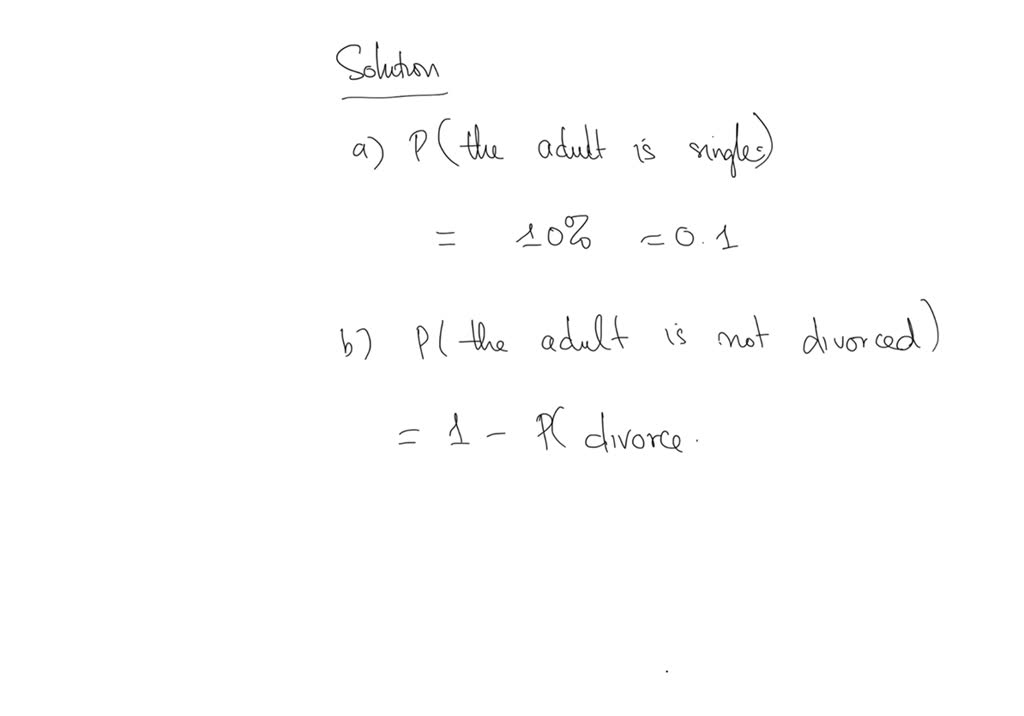 Solution
a) P(the adult is single)
= 10% = 0.1
b) P(the adult is not divorced)
= 1 - P( divorce.